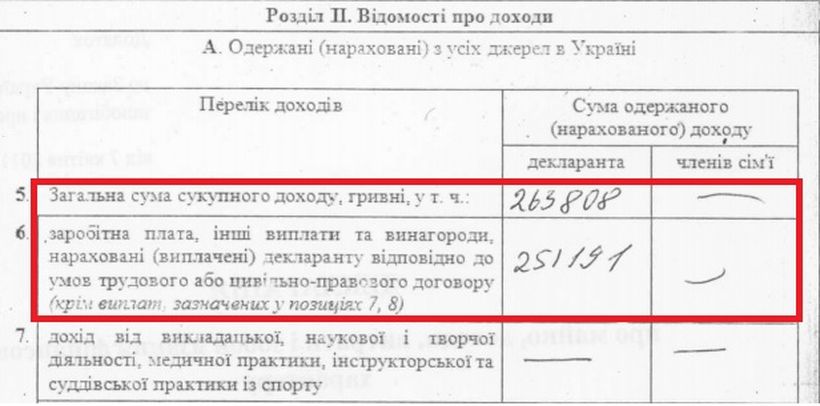 Розділ II. Відомості про доходи
А. Одержані (нараховані) з усіх джерел в Україні
Перелік доходів
Сума одержаного
(нарахованого) доходу
декларанта
членів сім'ї
5. Загальна сума сукупного доходу, гривні, у т. ч.: 263808 —
6. заробітна плата, інші виплати та винагороди,
нараховані (виплачені) декларанту відповідно до
умов трудового або цивільно-правового договору
(крім виплат, зазначених у позиціях 7, 8)
251191 —
7. дохід від викладацької, наукової і творчої
діяльності, медичної практики, інструкторської та
суддівської практики із спорту
— —